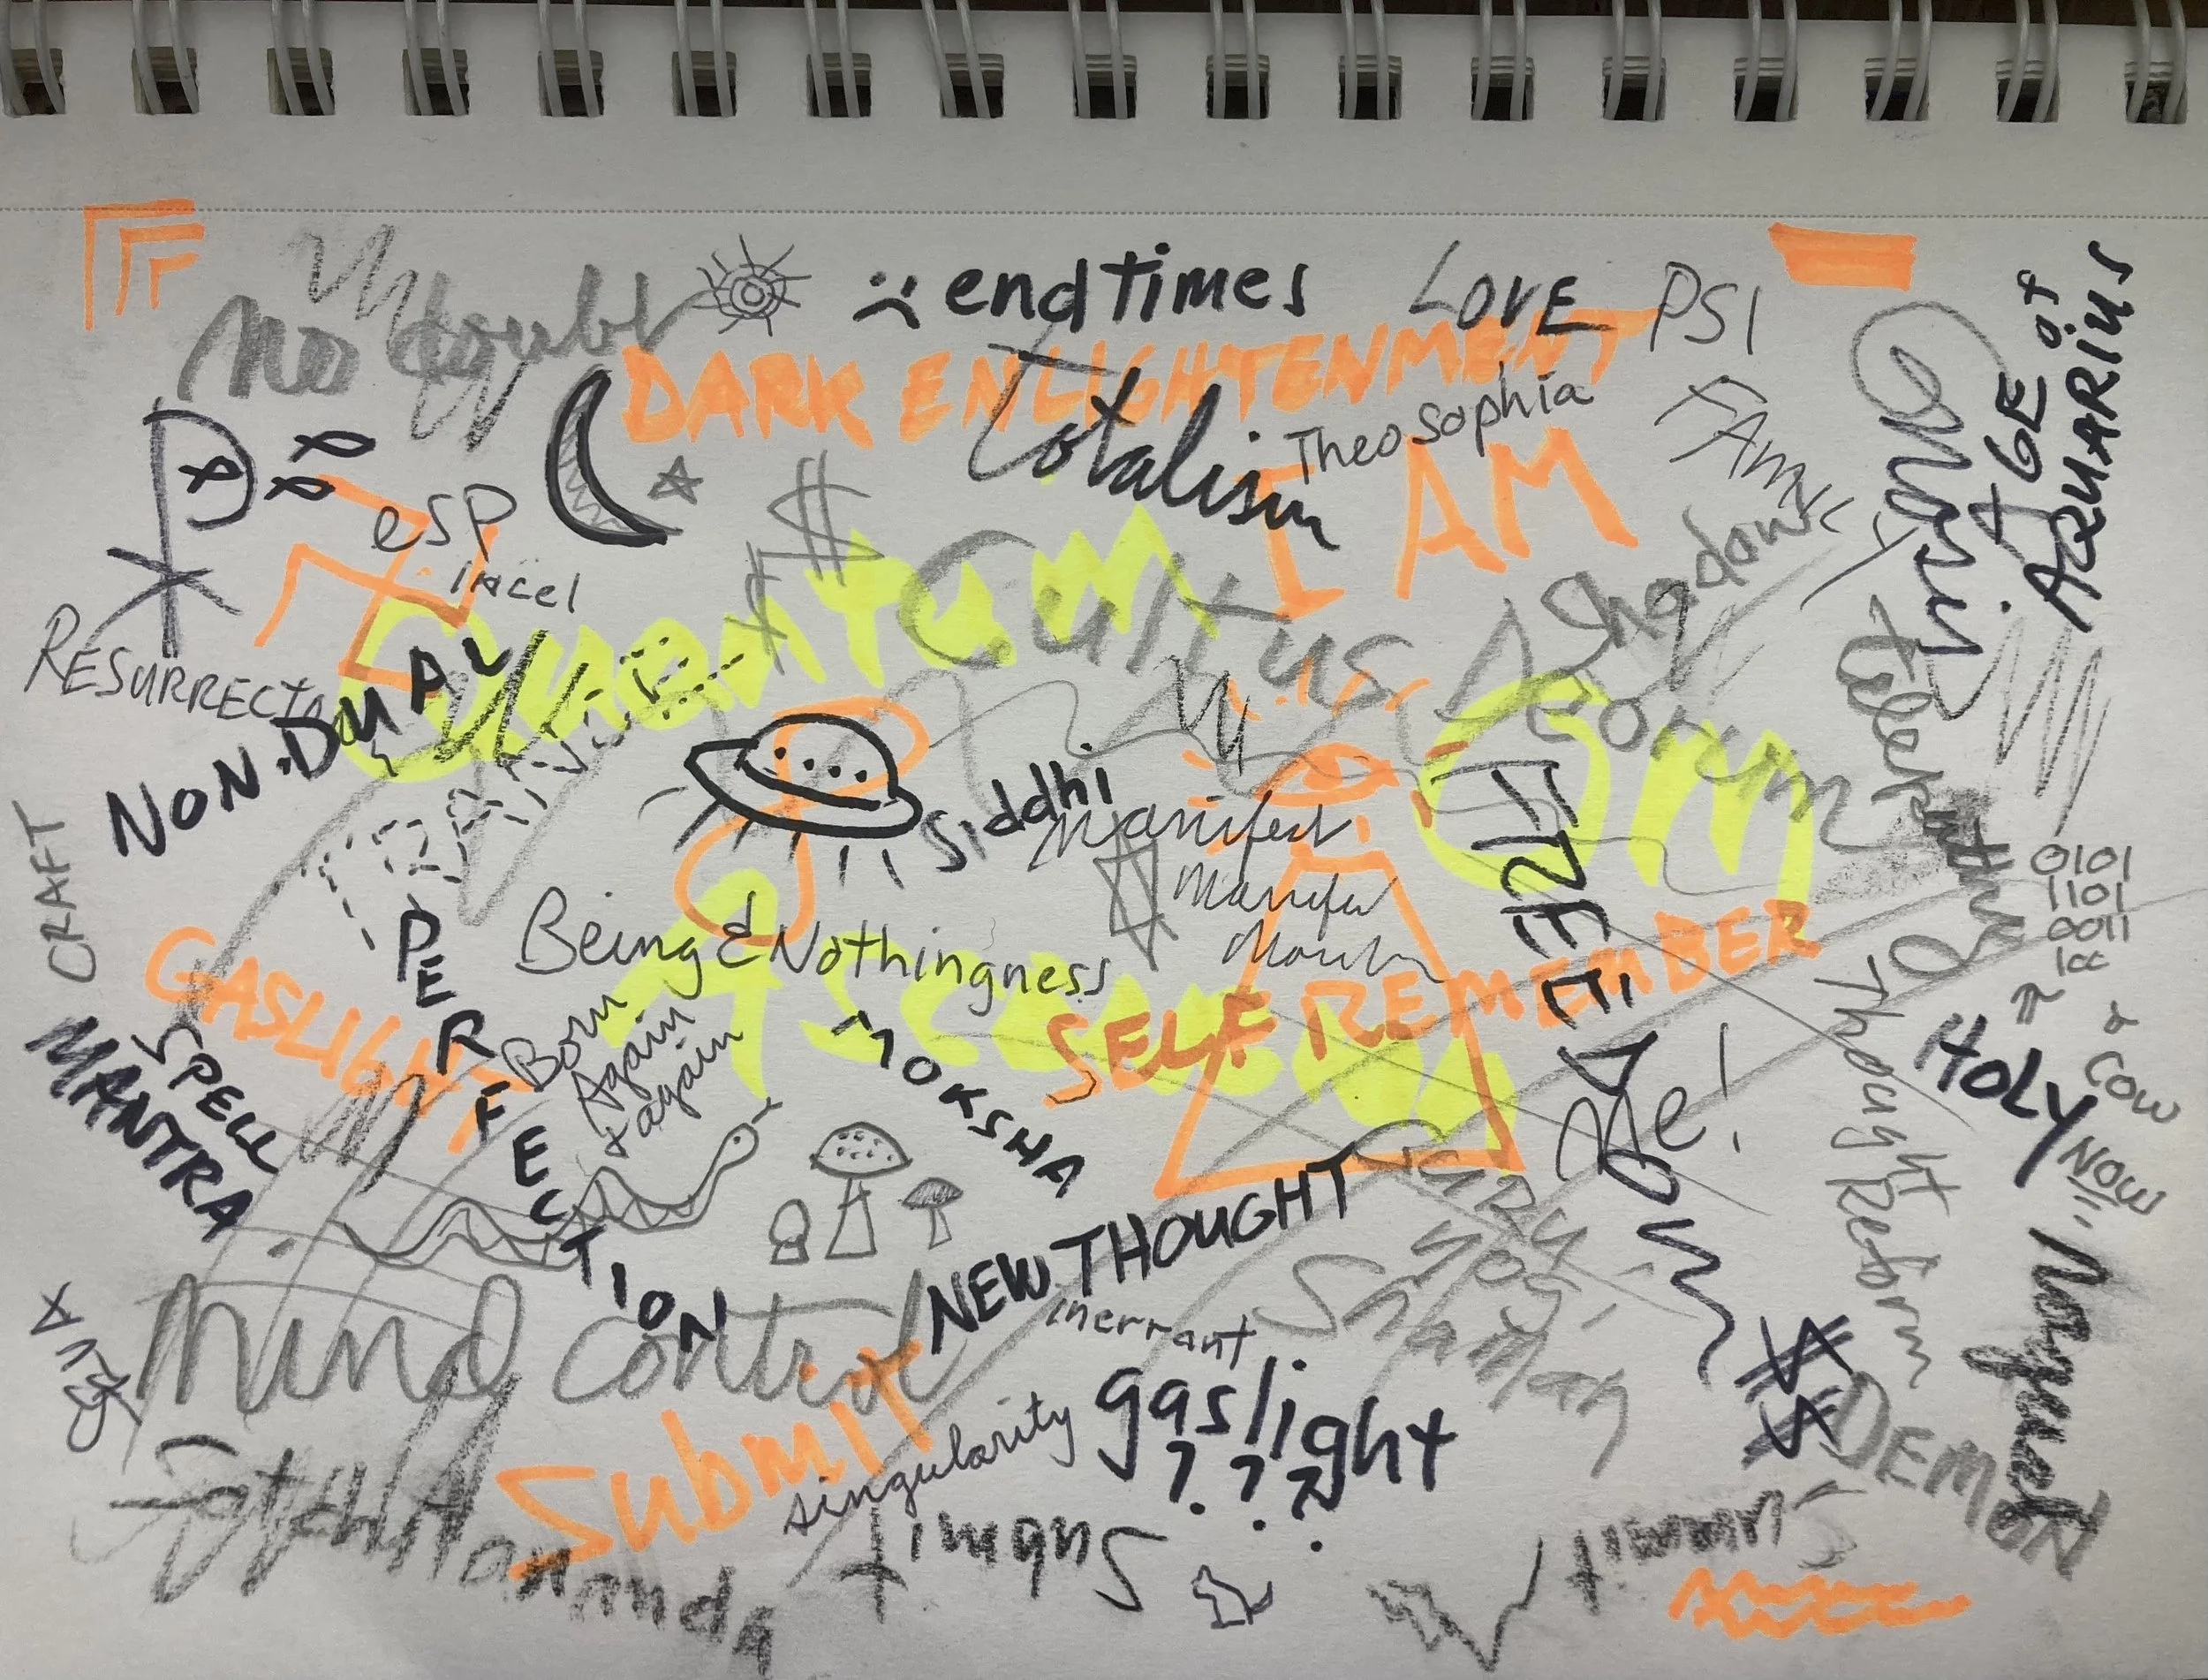 No doubt
endtimes
LOVE
PSI
AGE of
AQUARIUS
DARK ENLIGHTENMENT
Totalism
Theosophia
I AM
FAMILY
esp
incel
$
$
QUANTUM
Cultus Deorum
Shadow
Trust
telepathy
RESURRECT
NON.DUAL
Siddhi
Manifest
OM
0101
1101
0011
CRAFT
GASLIGHT
PERFECTION
Being & Nothingness
Ascend
SELF REMEMBER
Born
Again
+again
MOKSHA
SPELL
MANTRA
Me!
Thought Reform
HOLY
COW
NOW
NEW THOUGHT
GURU
Yogi
Shaman
inerrant
Mind Control
Submit
singularity
gaslight
? ? ?
Submit
Submit
DEMON
Satchitananda